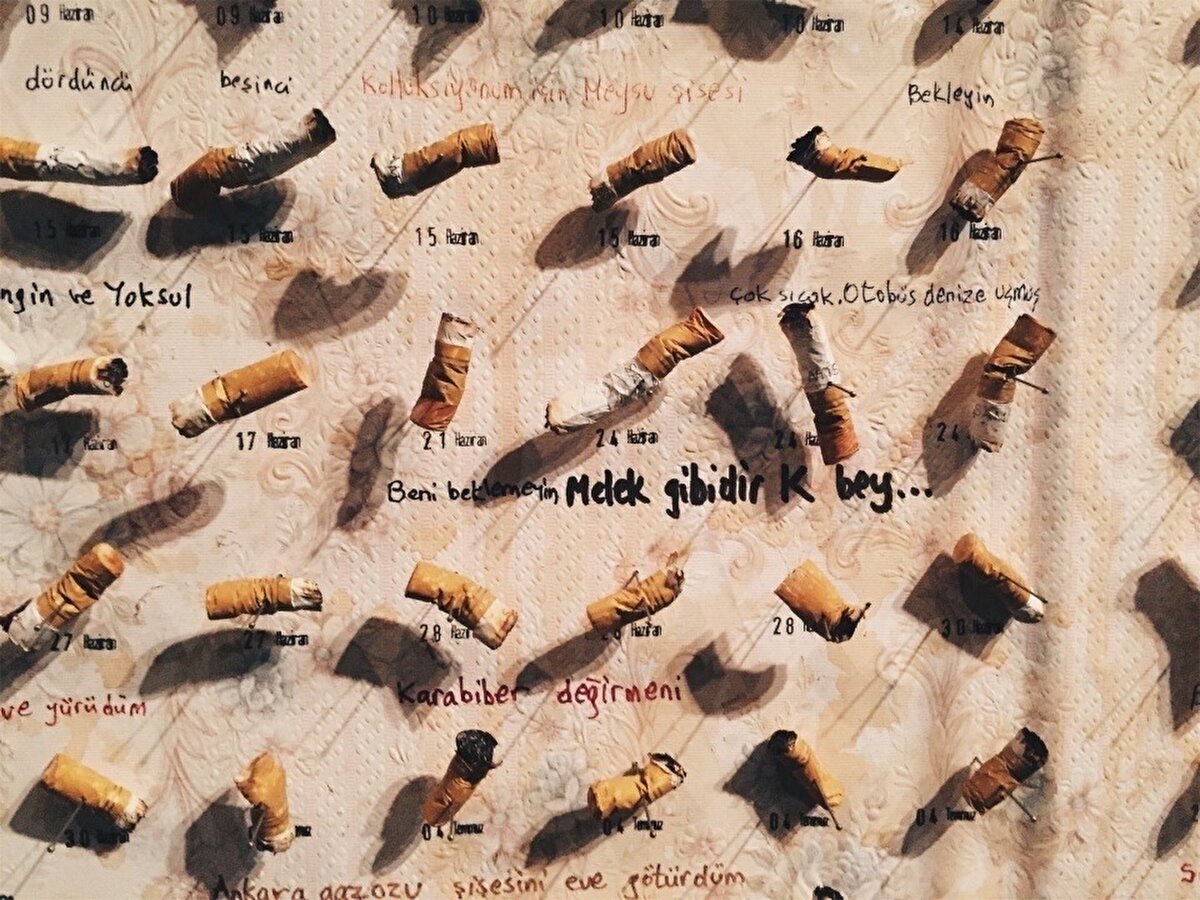 09 Haziran 09 Haziran 10 Haziran 10 Haziran 10 Haziran 14 Haziran
dördüncü beşinci Kolluksiyonum için Meysu şişesi Bekleyin
15 Haziran 15 Haziran 15 Haziran 15 Haziran 16 Haziran 16 Haziran
ngin ve Yoksul çok sıcak. Otobüs denize uçmuş
17 Haziran 17 Haziran 21 Haziran 24 Haziran 24 24
Beni beklemeyin Melek gibidir K bey...
27 Haziran 27 Haziran 28 Haziran 28 Haziran 28 30 Haziran
ve yürüdüm Karabiber değirmeni
30 Haziran 04 Temmuz 04 Temmuz 04 Temmuz 04 Temmuz
Ankara gazozu şişesini eve götürdüm